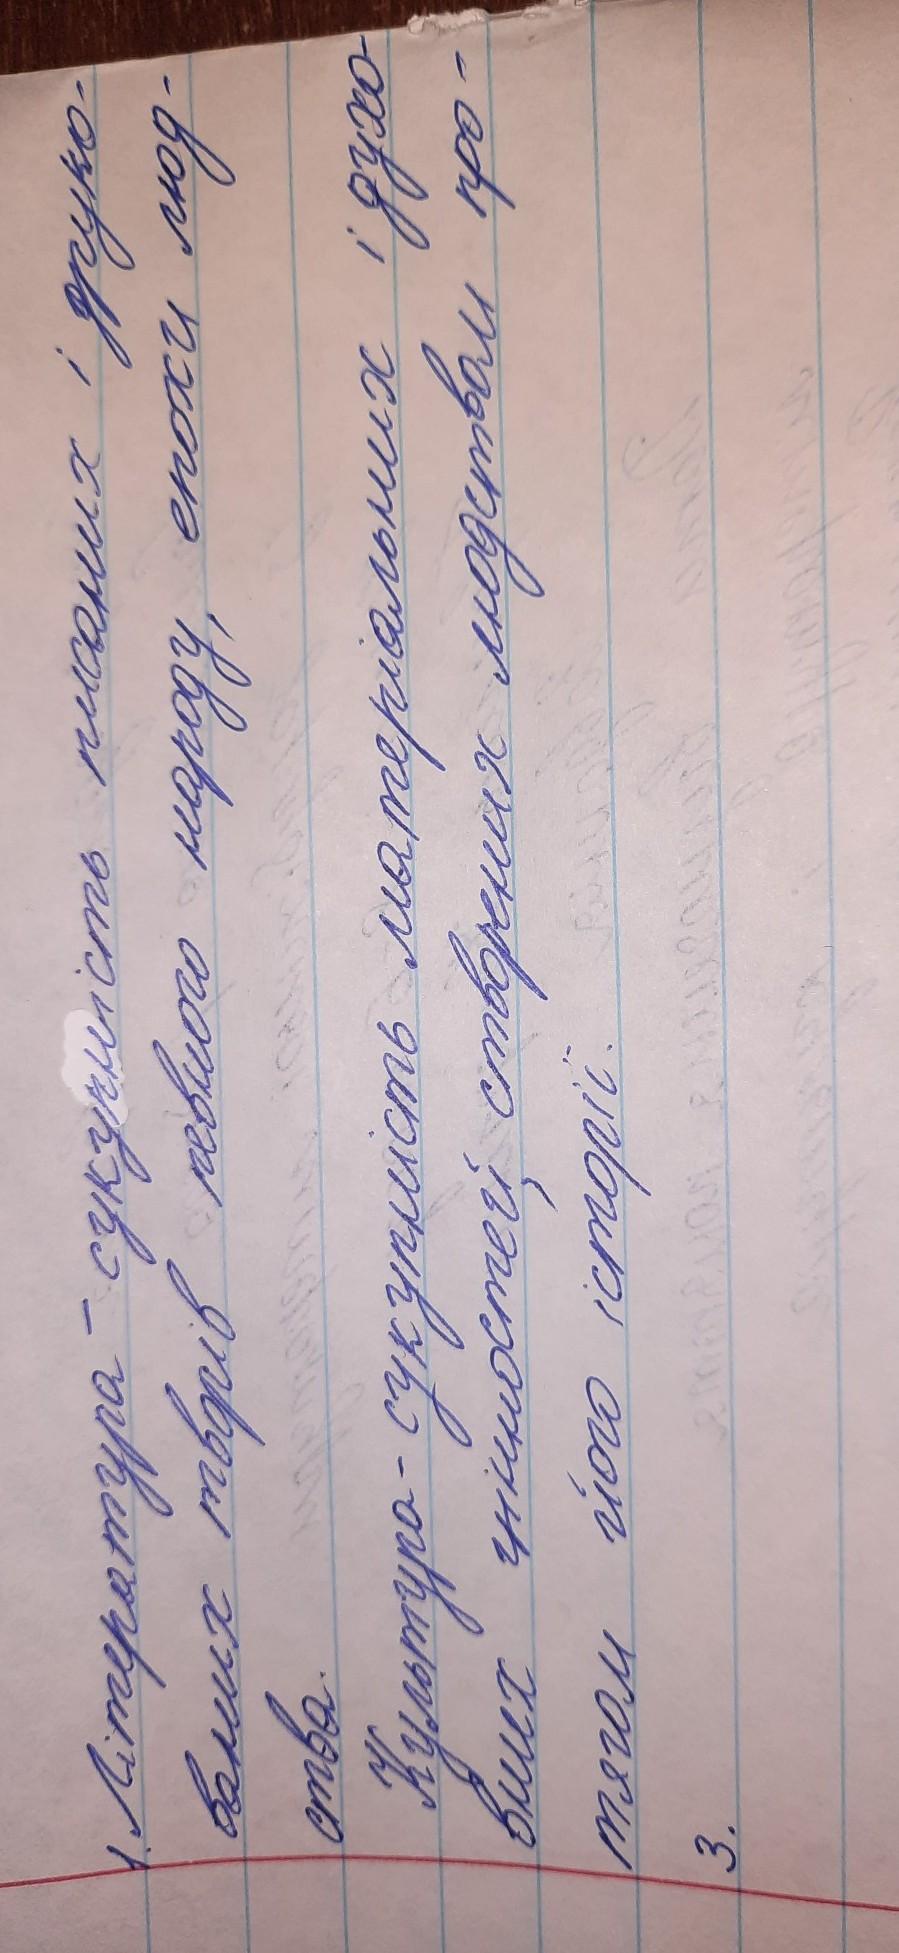 1. Література - сукупність писаних і друко-
ваних творів певного народу, епохи люд-
ства.
Культура - сукупність матеріальних і духо-
вних цінностей, створених людством про-
тягом його історії.
3.